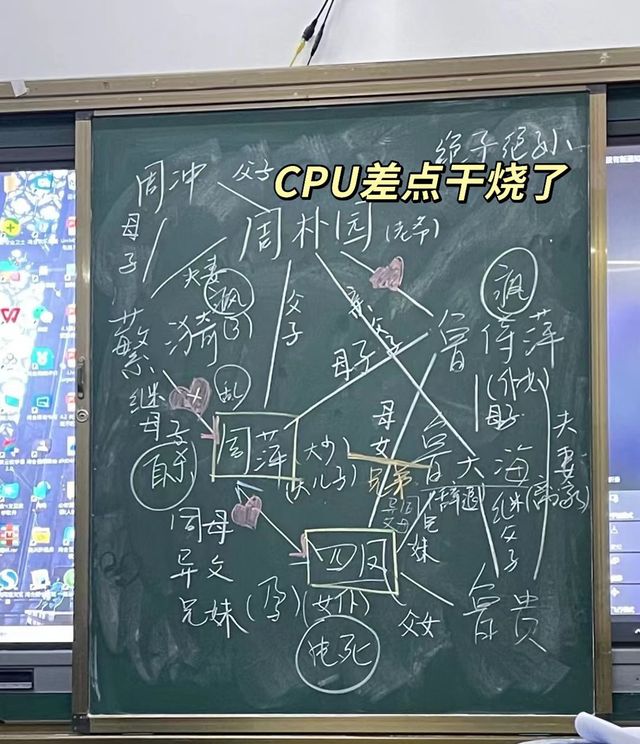 绝子绝孙
CPU差点干烧了
周冲
父子
周朴园(老爷)
母子
夫妻
疯
繁漪(子)
父子
亲父子
疯
鲁侍萍
母子
(外出)
母子
继
母子
乱
自杀
周萍(大少)
(大儿子)
母女
兄弟
鲁大海
(辞退)
继父子
夫妻
(离家)
同母
异父
兄妹(孕)
四凤
(女仆)
同母
异父
兄妹
父女
鲁贵
电死